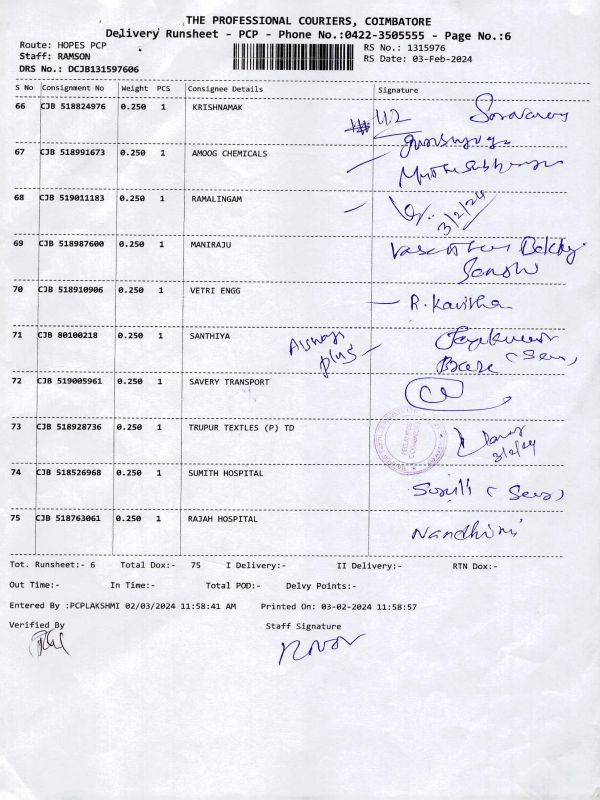 THE PROFESSIONAL COURIERS, COIMBATORE
Delivery Runsheet - PCP - Phone No.:0422-3505555 - Page No.:6
Route: HOPES PCP
RS No.: 1315976
Staff: RAMSON
RS Date: 03-Feb-2024
DRS No.: DCJB131597606
S No Consignment No Weight PCS Consignee Details Signature
66 CJB 518824976 0.250 1 KRISHNAMAK
67 CJB 518991673 0.250 1 AMOOG CHEMICALS
68 CJB 519011183 0.250 1 RAMALINGAM 3/2/24
69 CJB 518987600 0.250 1 MANIRAJU
70 CJB 518910906 0.250 1 VETRI ENGG R. Kavitha
71 CJB 80100218 0.250 1 SANTHIYA plus
72 CJB 519005961 0.250 1 SAVERY TRANSPORT
73 CJB 518928736 0.250 1 TRUPUR TEXTLES (P) TD 3/2/24
74 CJB 518526968 0.250 1 SUMITH HOSPITAL
75 CJB 518763061 0.250 1 RAJAH HOSPITAL Nandhini
Tot. Runsheet:- 6 Total Dox:- 75 I Delivery:- II Delivery:- RTN Dox:-
Out Time:- In Time:- Total POD:- Delvy Points:-
Entered By :PCPLAKSHMI 02/03/2024 11:58:41 AM Printed On: 03-02-2024 11:58:57
Verified By Staff Signature